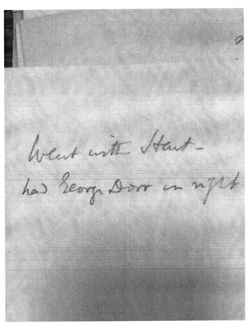 Went with Hart -
had George Dorr in right